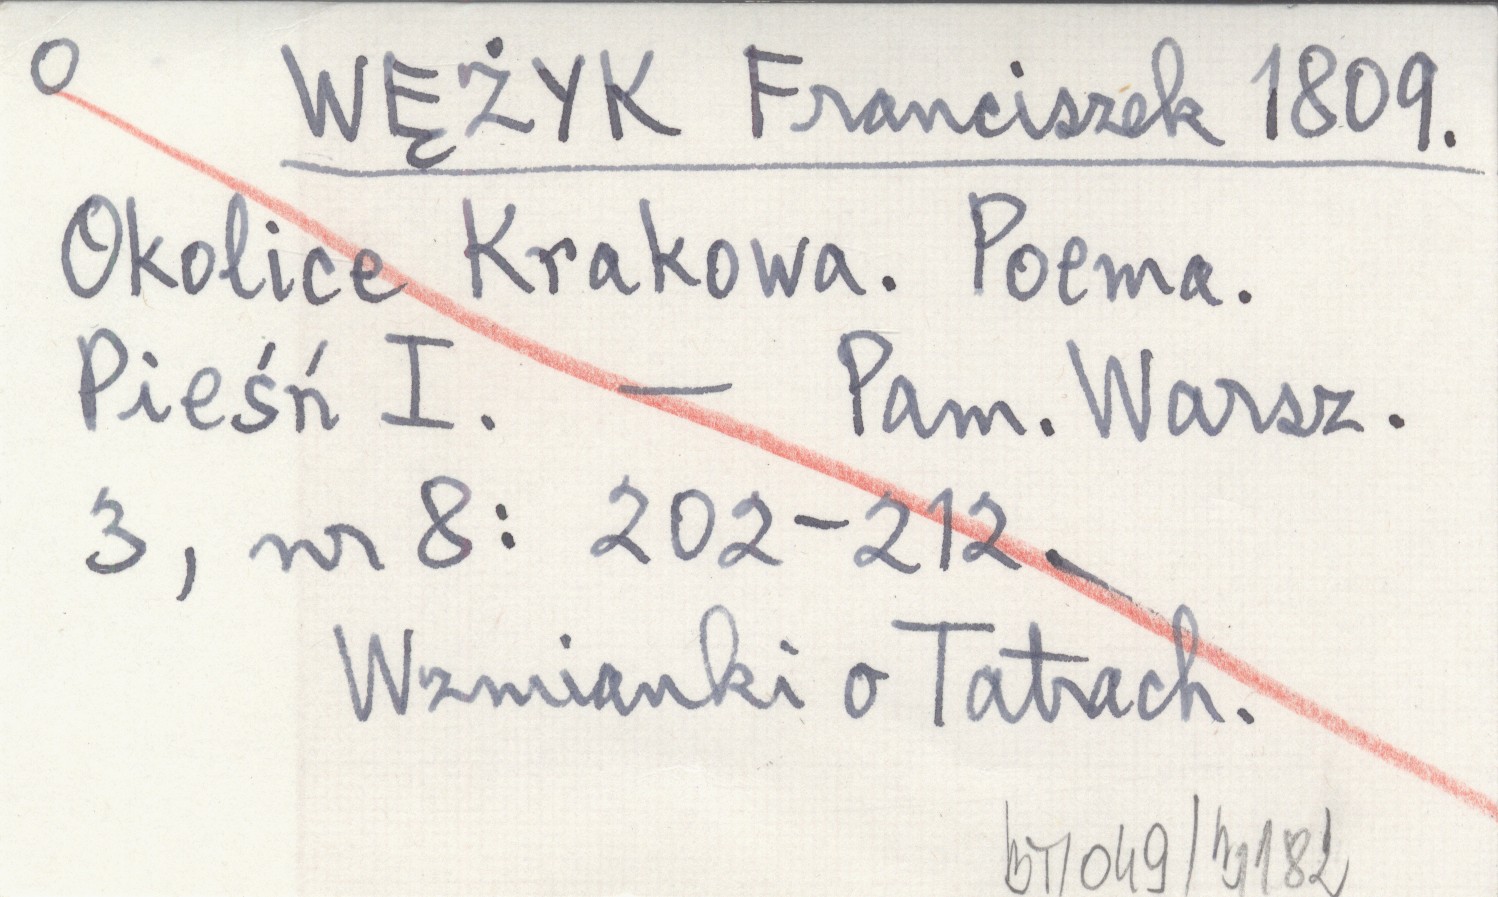 O WĘŻYK Franciszek 1809.
Okolice Krakowa. Poema.
Pieśń I. — Pam. Warsz.
3, nr 8: 202-212.
Wzmianki o Tatrach.